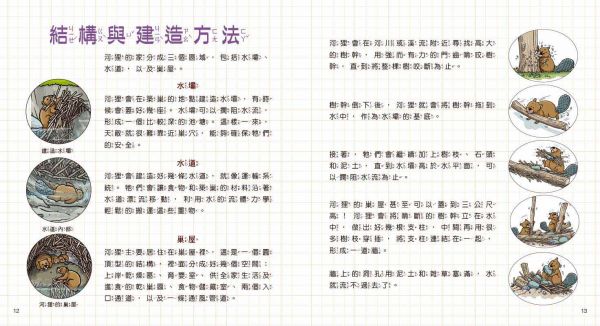 結構與建造方法
河狸的家分成三個區域，包括水壩、
水道，以及巢屋。
水壩
河狸會在築巢的地點建造水壩，有時
候會蓋好幾座。水壩可以攔阻水流，
形成一個比較深的池塘。這樣一來，
天敵就很難靠近巢穴，能夠確保牠們
的安全。
建造水壩
水道
河狸會建造好幾條水道，就像運輸系
統。牠們會讓食物和築巢的材料沿著
水道漂流移動，利用水的流體力學
輕鬆的搬運這些重物。
水道內部
巢屋
河狸主要居住在巢屋裡，這是一個圓
頂型的結構，裡面分成好幾個空間：
上岸乾燥墓、育嬰室、供全家生活及
進食的乾燥圓、食物儲藏室、兩個入
口通道，以及一條通風管道。
河狸的巢屋
12
河狸會在河川或溪流附近尋找高大
的樹幹，用強而有力的門齒啃咬樹
幹，直到將整棵樹咬斷為止。
樹幹倒下後，河狸就會將樹幹拖到
水中，作為水壩的基底。
接著，牠們會繼續加上樹枝、石頭
和泥土，直到水壩高於水平面，可
以攔阻水流為止。
河狸的巢屋甚至可以蓋到三公尺
高！河狸會將啃斷的樹幹立在水
中，做出好幾根支柱，中間再用很
多樹枝穿插，將支柱連結在一起，
形成一道牆。
牆上的洞孔用泥土和雜草塞滿，水
就流不過去了。
13